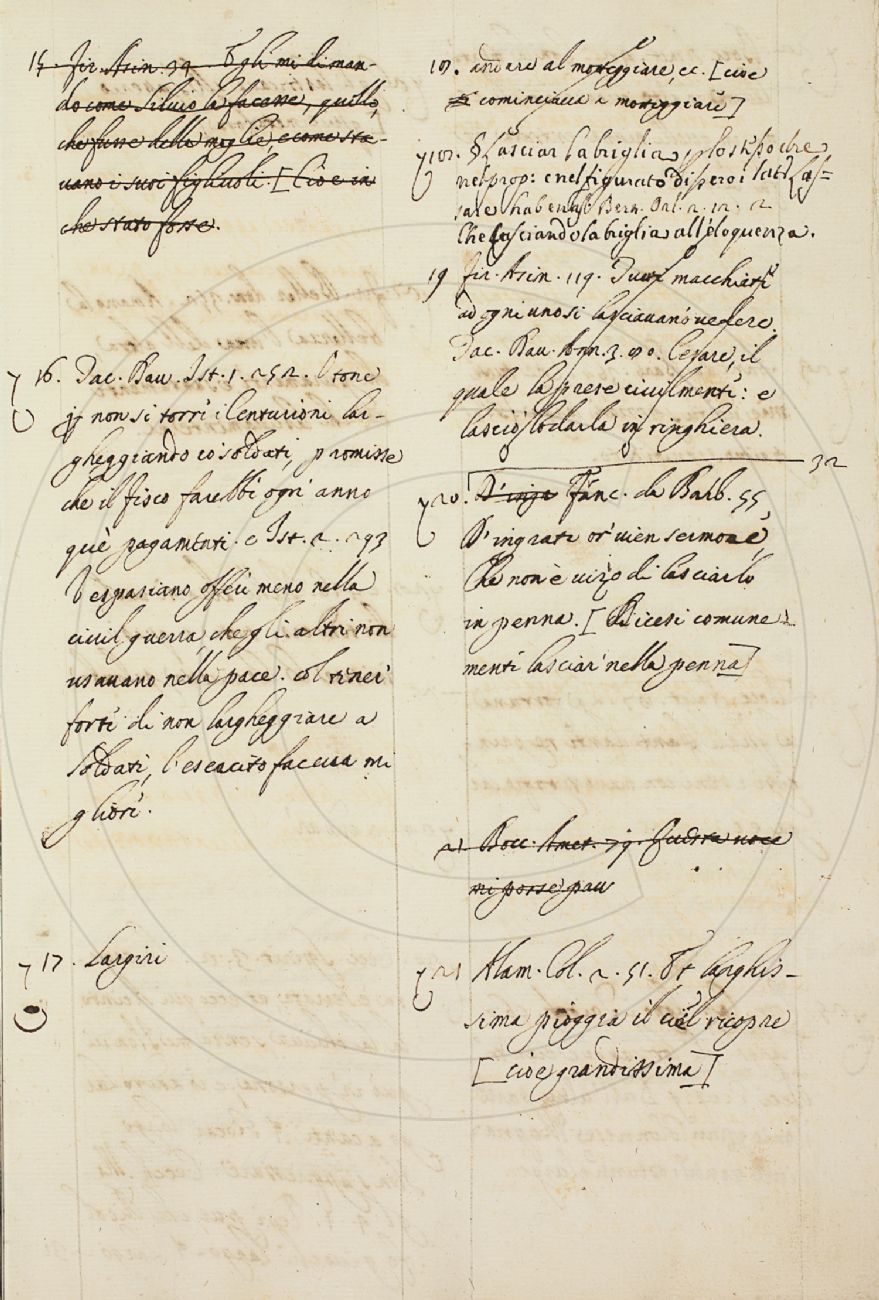 15. Fir. Asin. 39. Egli mi diman-
do come Silvio la facesse, quello,
che fusse della moglie, e come sta-
uano i suoi figliuoli. [Cioè in
che stato fosse.
16. Dac. Dav. Ist. 1. 252. Otone
non si torre i Centurioni lar-
gheggiando co' soldati, promisse
che il fisco farebbe ogni anno
que' pagamenti. e Ist. 2. 293
Vespasiano offerì meno nella
civil guerra, che gli altri non
usavano nella pace. col tener
forte di non largheggiare a
soldati, l'esercito faceva mi
gliore.
17. Largire
18. andare al moreggiare, ec. [cioe
cominciava a moreggiare]
18. § Lasciar la briglia, lo stesso che
nel prop: e nel figurato di sopra Lat. Las-
sare habenas Bern. Orl. 2. 12. 2
Che lasciando la briglia all'eloquenza.
19 Fir. Asin. 119. macchiate
ad ogni uno si lasciavano vedere.
Dac. Dav. Ann. 3. 80. Cesare, il
quale la prese civilmente: e
lasciò lodarla in ringhiera.
32
20. D'ingr Franc. da Barb. 55,
D'ingrati or' vien sermone,
Che non è vizo di lasciarlo
in penna. [Dicesi comune
mente lasciar nella penna]
21 Bocc. Amet. 79. Guerra
mi posse
21 Alam. Col. 2. 51. Et larghis-
sima pioggia il ciel ricopre
[cioe grandissima]